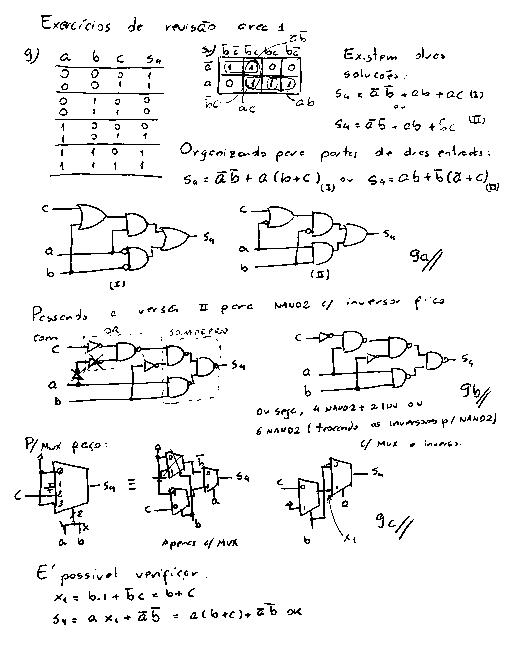 Exercícios de revisão area 1
9)
a b c S4
0 0 0 1
0 0 1 1
0 1 0 0
0 1 1 0
1 0 0 0
1 0 1 1
1 1 0 1
1 1 1 1
b̄c̄ b̄c bc bc̄
āb̄
ā 1 1 0 0
a 0 1 1 1
b̄c ac ab
Existem duas
soluções:
S4 = āb̄ + ab + ac (I)
ou
S4 = āb̄ + ab + b̄c (II)
Organizando para portas de duas entradas:
S4 = āb̄ + a(b+c) (I) ou S4 = ab + b̄(ā+c) (II)
c
a
b
S4
(I)
c
a
b
S4
(II)
9a//
Passando a versão II para NAND2 c/ inversor fica
com
OR
c
a
b
S4
c
a
b
S4
9b//
Ou seja, 4 NAND2 + 2 INV ou
6 NAND2 (trocando os inversores p/ NAND2)
P/ Mux faço:
c/ MUX e inverso.
c
0
1
2
3
S4
2
a b
≡
b̄
c
S4
a
b
Apenas c/ MUX
c
S4
a
b
x1
9c//
É possivel verificar.
x1 = b.1 + b̄c = b+c
S4 = a x1 + āb̄ = a(b+c) + āb̄ ok